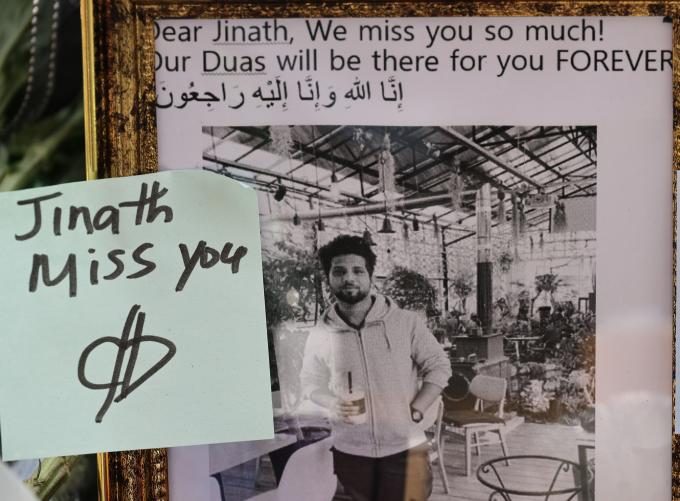 Dear Jinath, We miss you so much!
Our Duas will be there for you FOREVER
إِنَّا اللهِ وَإِنَّا إِلَيْهِ رَاجِعُونَ
Jinath
Miss you